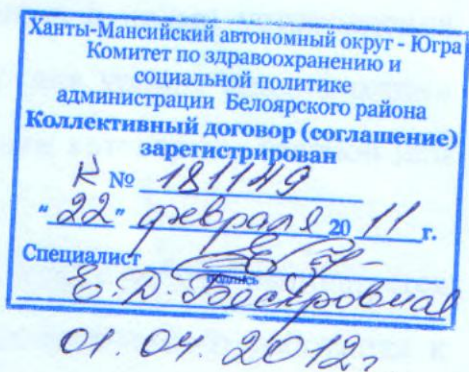 Ханты-Мансийский автономный округ - Югра
Комитет по здравоохранению и
социальной политике
администрации Белоярского района
Коллективный договор (соглашение)
зарегистрирован
К № 181149
"22" февраля 20 11 г.
Специалист
подпись
Е.Д.
01.04.2012г